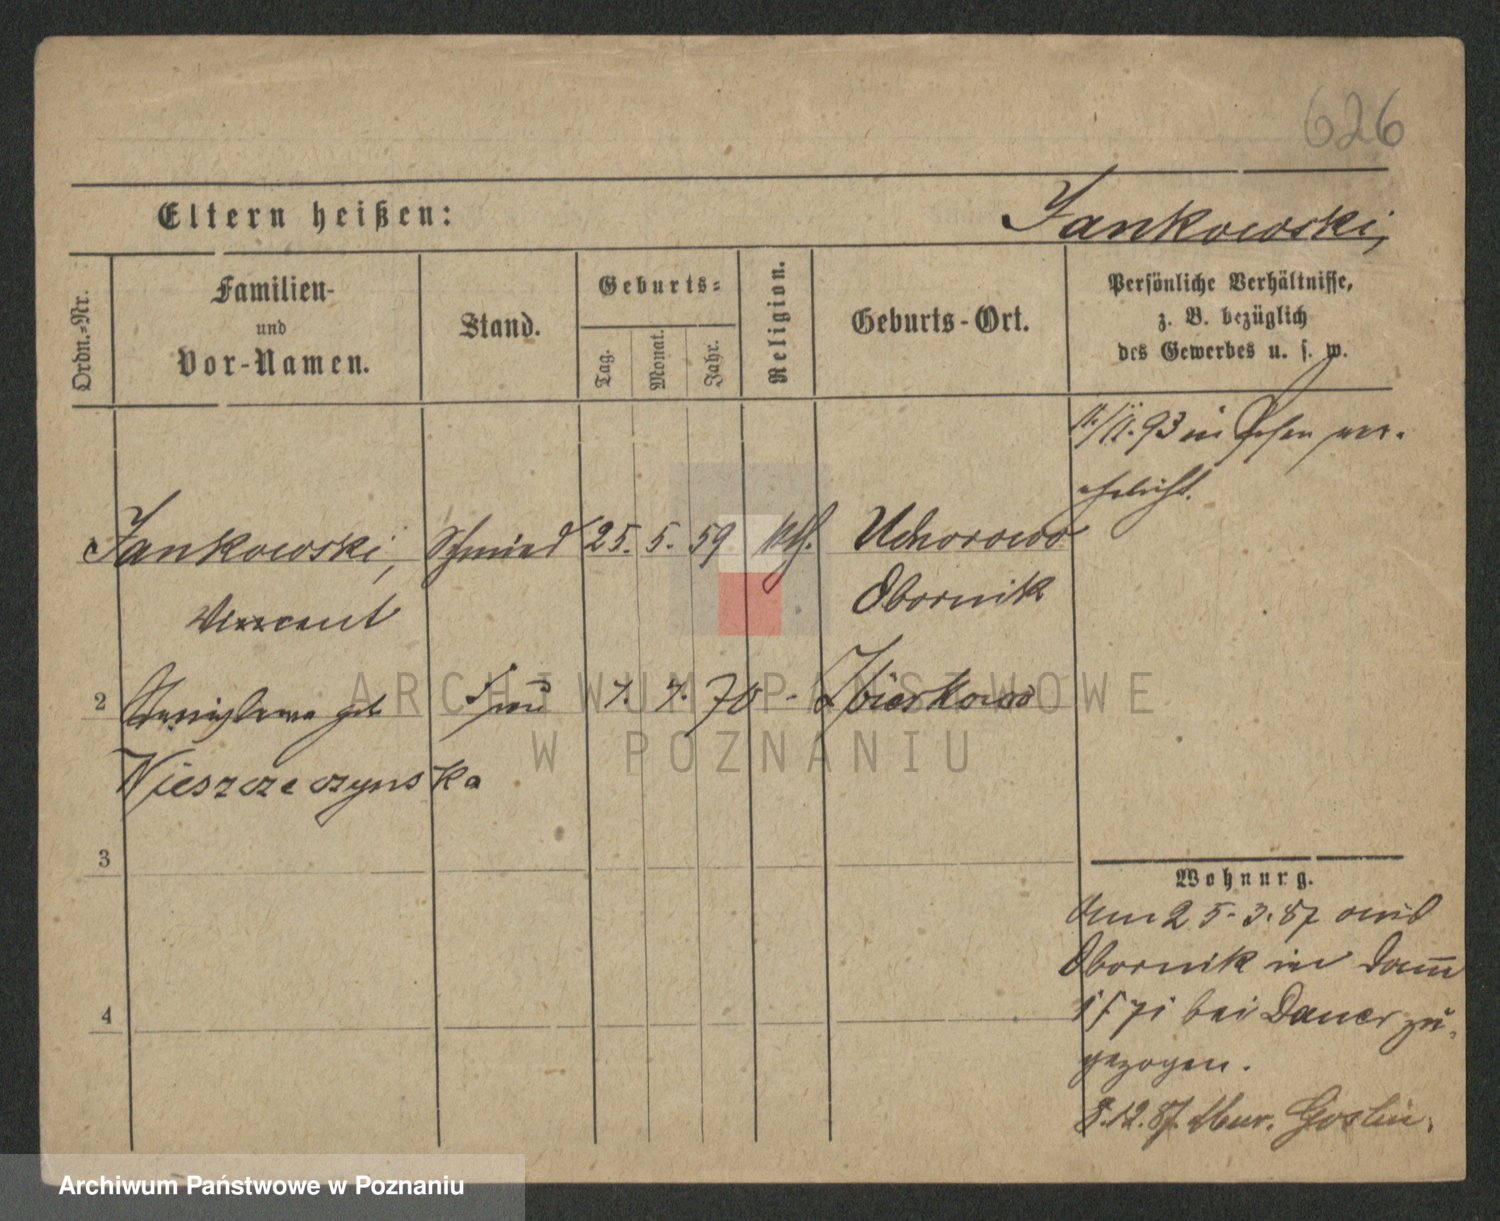 626
Eltern heißen:
Jankowski,
Ordn.-Nr.
Familien-
und
Vor-Namen.
Stand.
Geburts-
Tag.
Monat.
Jahr.
Religion.
Geburts-Ort.
Persönliche Verhältnisse,
z. B. bezüglich
des Gewerbes u. s. w.
11./11. 93 in Posen ver-
ehelicht.
Jankowski, Schmied 25. 5. 59 kth. Uchorowo
Vincent Obornik
2 Stanislawa geb Frau 7. 4. 70 - Zbierkowo
Nieszczeczynska
3
Wohnung.
Am 25.3.87 aus
Obornik in
bei Dauer zu-
gezogen.
8.12.87. Mur. Goslin.
4
ARCHIWUM PAŃSTWOWE
W POZNANIU
Archiwum Państwowe w Poznaniu